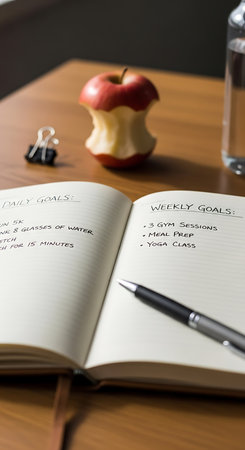 DAILY GOALS:
5K
8 GLASSES OF WATER
FOR 15 MINUTES
WEEKLY GOALS:
• 3 GYM SESSIONS
• MEAL PREP
• YOGA CLASS